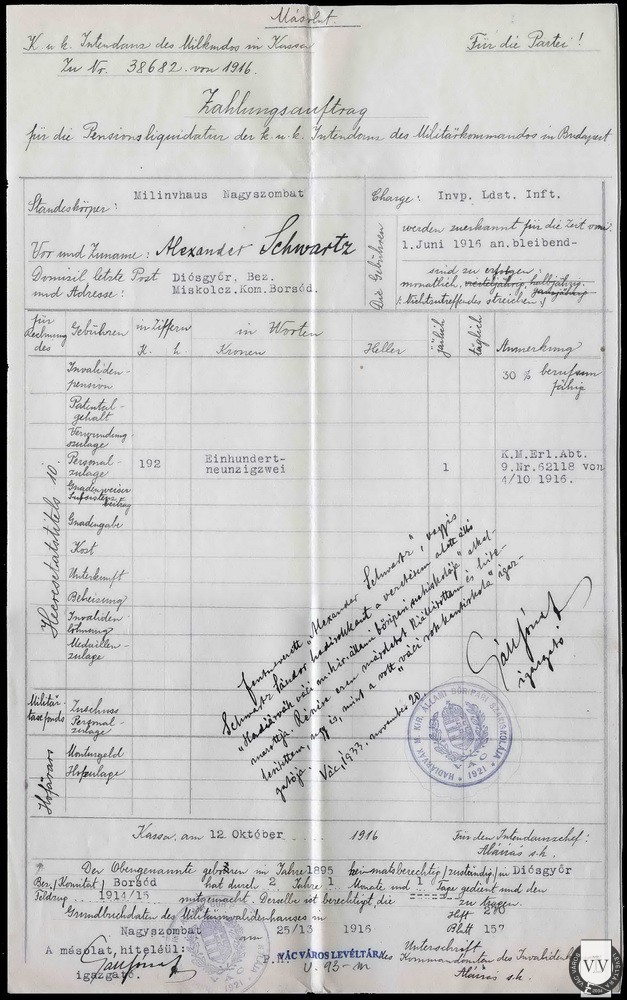 Másolat.
K. u. k. Intendanz des Milkmdos in Kassa
Für die Partei!
Zu Nr. 38682. von 1916.
Zahlungsauftrag
für die Pensionsliquidatur der k. u. k. Intendanz des Militärkommandos in Budapest
Standeskörper: Milinvhaus Nagyszombat
Charge: Invp. Ldst. Inft.
Vor und Zuname: Alexander Schwartz
Die Gebühren
werden zuerkannt für die Zeit vom
1.Juni 1916 an.bleibend-
Domizil letzte Post Diósgyőr, Bez.
und Adresse: Miskolcz.Kom.Borsód.
sind zu erfolgen:
monatlich, vierteljährig, halbjährig,
ganzjährig
/: Nichtzutreffendes streichen :/
für Rechnung des
Gebühren
in Ziffern
K. h.
in Worten
Kronen
Heller
jährlich
täglich
Anmerkung
Heeresetatstitels 10.
Invaliden-
pension
30 % berufsun
fähig
Patental-
gehalt
Verwundung-
szulage
Personal-
zulage
192
Einhundert-
neunzigzwei
1
K.M.Erl.Abt.
9.Nr.62118 von
4/10 1916.
Gnadenweiser
Subsistenz-
beitrag
Gnadengabe
Kost
Unterkunft
Beheizung
Invaliden-
löhnung
Medaillen-
zulage
Militär-
taxfonds
Zuschuss
Personal-
zulage
Hofärars
Montursgeld
Hofzulage
fentnevezett „Alexander Schwartz", vagyis
Schwartz Sándor hadirokkant a vezetésem alatt álló
„Hadiárvák váci m. kir. állami bőripari szakiskolája" alkal-
mazottja. Részére ezen másolatot kiállítottam és hite-
lesítettem, úgy is, mint a volt „váci rokkantiskola" igaz-
gatója.
Vác, 1933. november 20
Gál József
igazgató
HADIÁRVÁK M. KIR. ÁLLAMI BŐRIPARI SZAKISKOLÁJA
VÁC
1921
Kassa, am 12 Október 1916
Für den Intendanzchef:
Aláírás s.k.
Der Obengenannte geboren im Jahre 1895 heimatsberechtig /zuständig/ in Diósgyőr
Bez./Komitat/ Borsód hat durch 2 Jahre 1 Monate und 1 Tage gedient und den
Feldzug 1914/15 mitgemacht. Derselbe ist berechtigt, die zu tragen.
Grundbuchdaten des Militärinvalidenhauses in
Heft 270
Nagyszombat am 25/13 1916
Blatt 157
A másolat hiteléül:
Unterschrift
des Kommandanten des Invalidenh
Gál József
igazgató.
Aláírás s.k.
VÁC VÁROS LEVÉLTÁRA
U. 93-m
VV